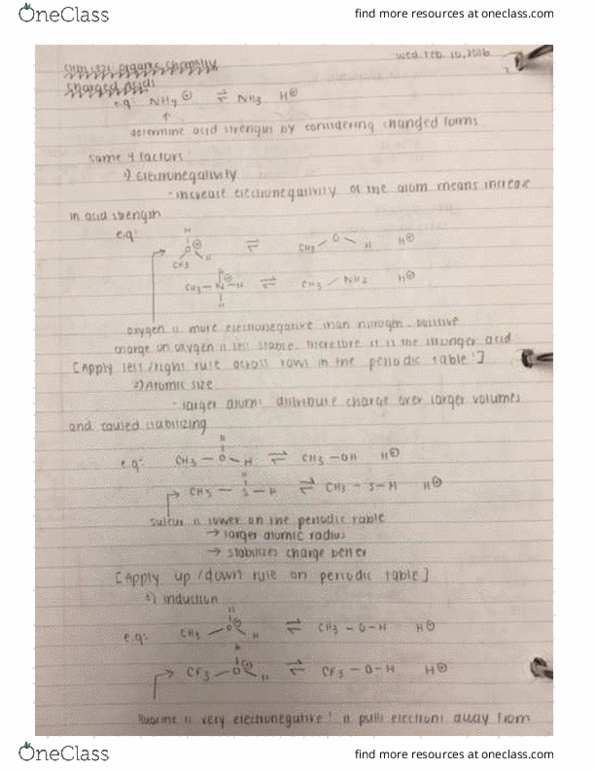 OneClass
find more resources at oneclass.com
Wed. Feb. 10, 2016
CHM 1321: Organic Chemistry
Charged Acids
e.g: NH4 ⊕ ⇌ NH3 H⊕
determine acid strength by considering changed forms
same 4 factors:
1) Electronegativity
- increase electronegativity of the atom means increase
in acid strength
e.g:
H
CH3 O⊕ H ⇌ CH3 O H H⊕
H⊕
CH3 - N - H ⇌ CH3 / NH2 H⊕
H
oxygen is more electronegative than nitrogen. positive
charge on oxygen is less stable. therefore it is the stronger acid
[Apply left/right rule across rows in the periodic table!]
2) Atomic size
- larger atoms distribute charge over larger volumes
and caused stabilizing
H
e.g: CH3 - O - H ⇌ CH3 - OH H⊕
H
CH3 - S - H ⇌ CH3 - S - H H⊕
sulfur is lower on the periodic table
→ larger atomic radius
→ stabilizes charge better
[Apply up/down rule on periodic table]
induction
H
e.g: CH3 - O⊕ H ⇌ CH3 - O - H H⊕
H
CF3 - O⊕ H ⇌ CF3 - O - H H⊕
fluorine is very electronegative! it pulls electrons away from
OneClass
find more resources at oneclass.com